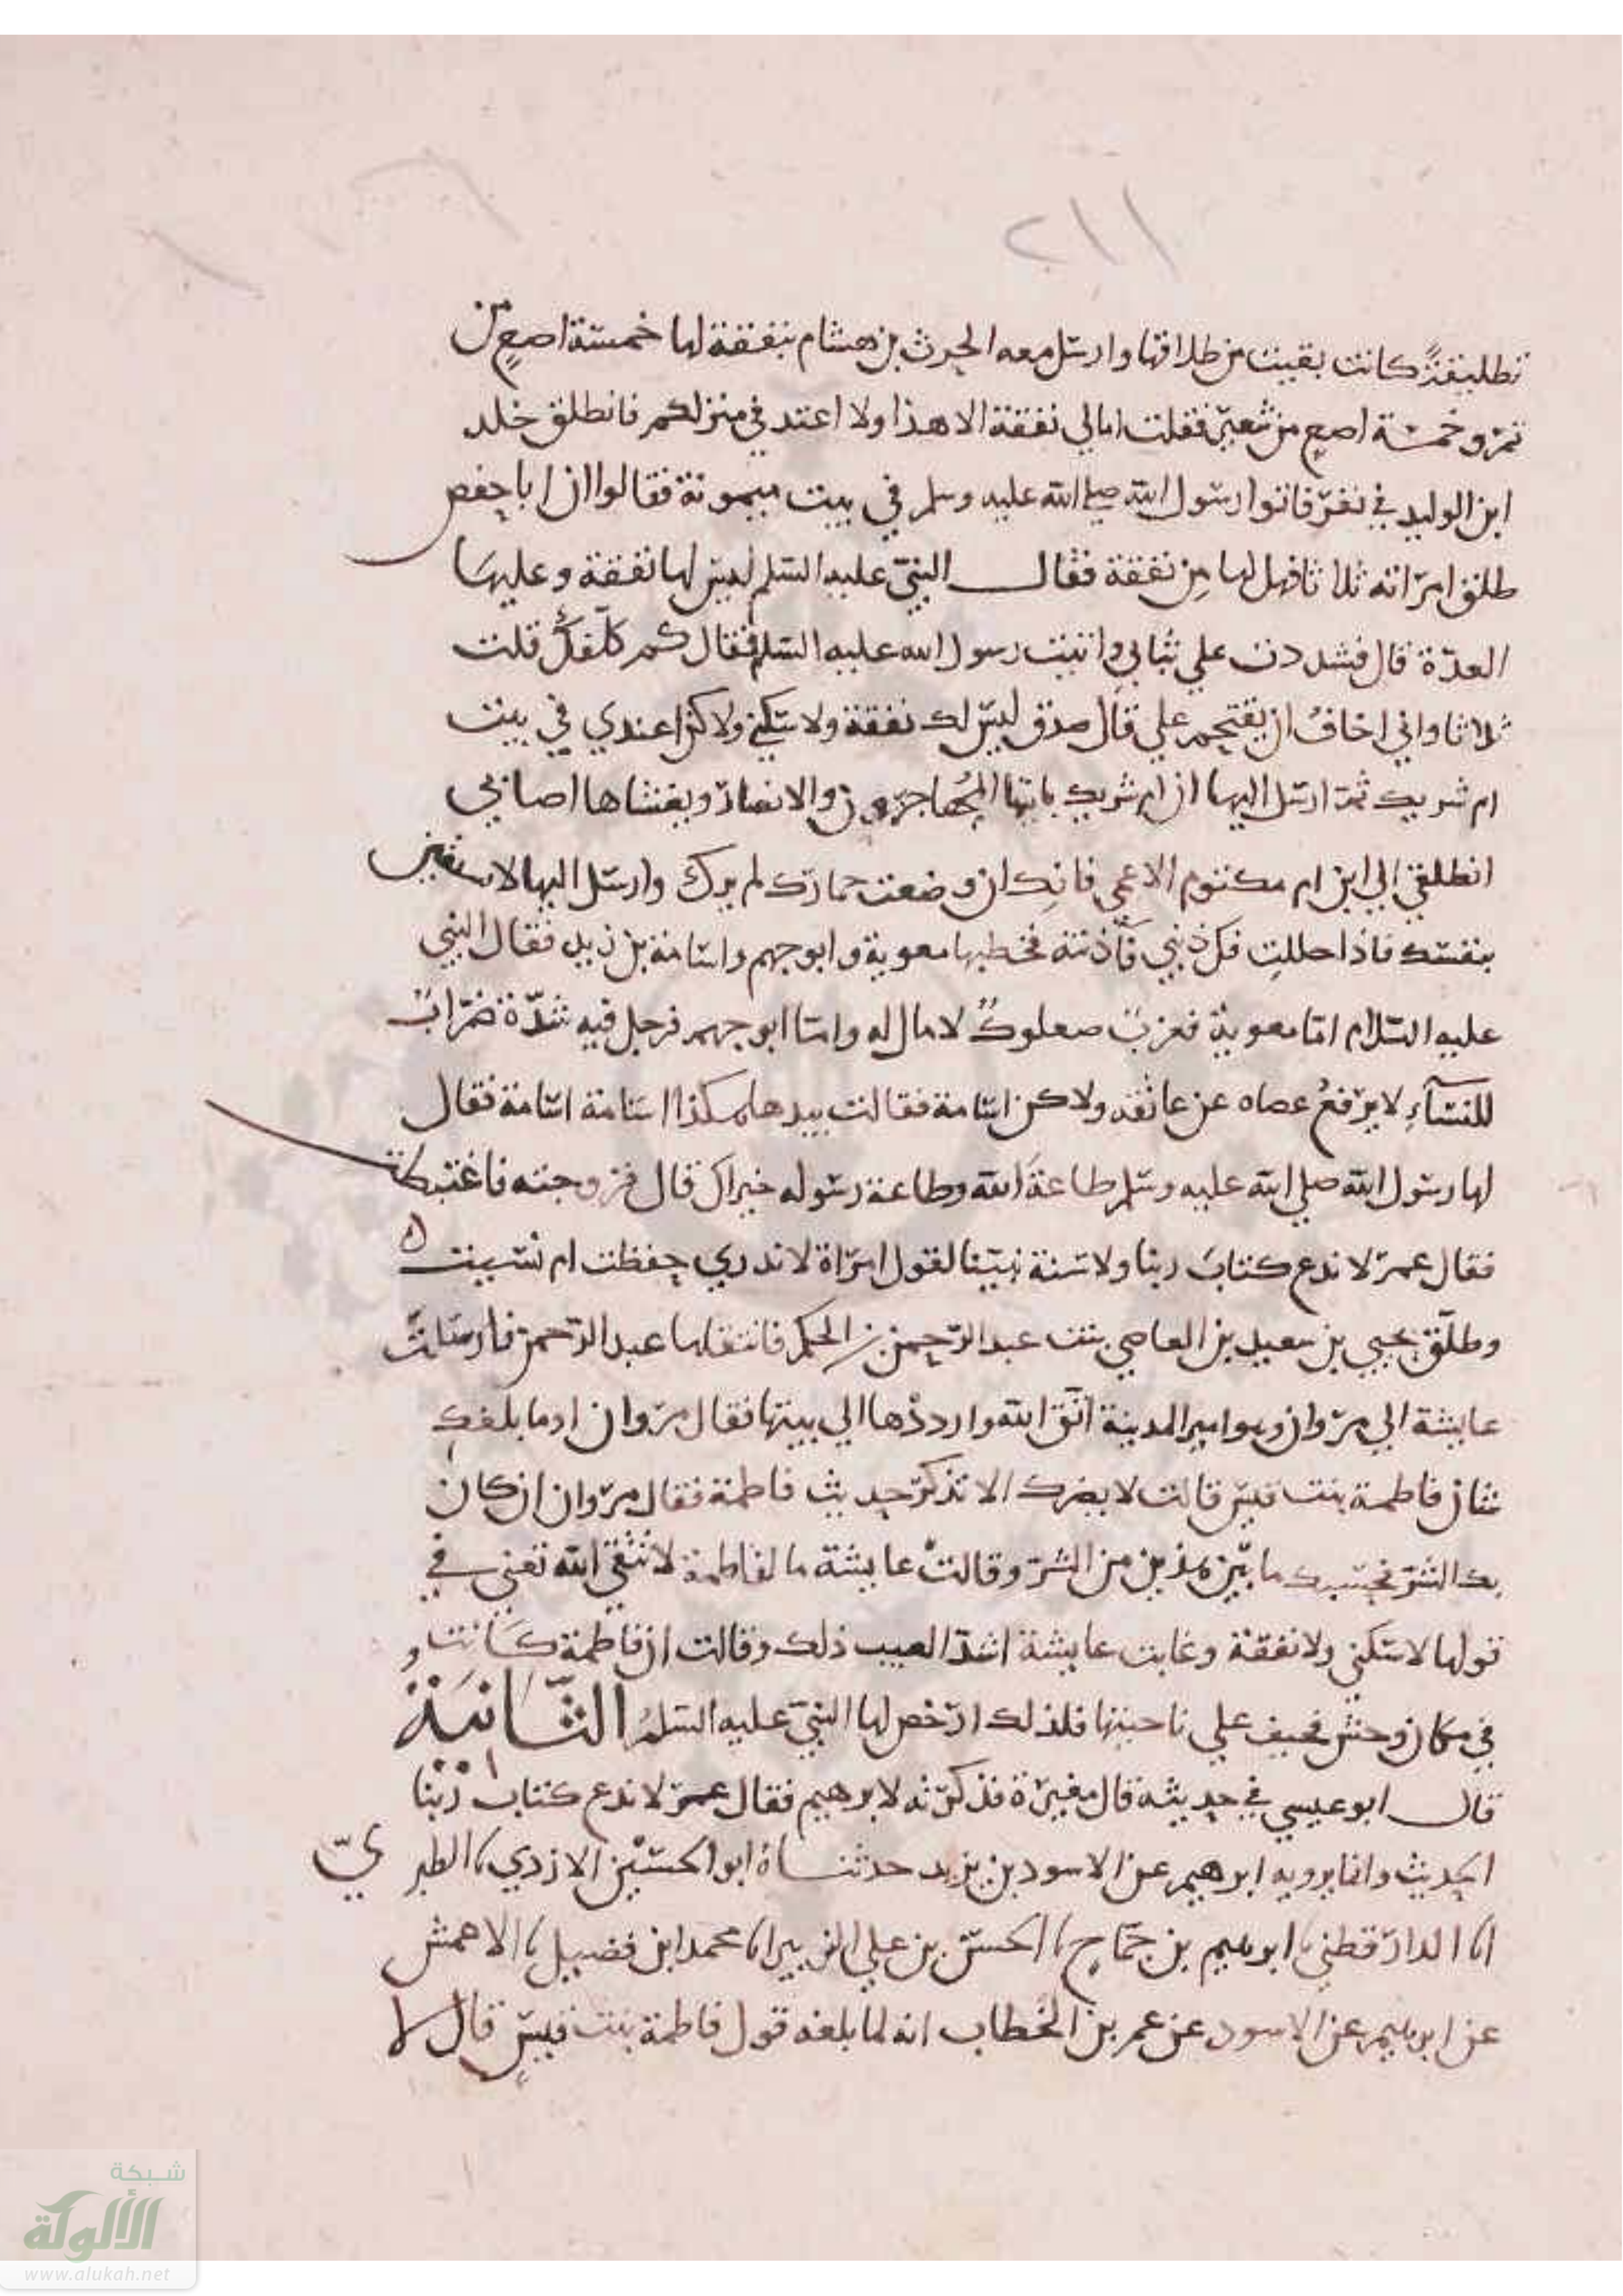 ٢١١
تطليقةً كانت بقيت من طلاقها وارسل معه الحرث بن هشام بنفقة لها خمسة اصعٍ من
تمر وخمسة اصعٍ من شعير فقلت امالي نفقة الا هذا ولا اعتد في منزلكم فانطلق خلد
ابن الوليد في نفر فاتوا رسول الله صلى الله عليه وسلم في بيت ميمونة فقالوا ان ابا حفص
طلق امراته ثلاثا فهل لها من نفقة فقال النبي عليه السلم ليس لها نفقة وعليها
العدّة قال فشددت علي ثيابي واتيت رسول الله عليه السلم فقال كم طلّقكِ قلت
ثلاثا واني اخافُ ان يقتحم علي قال صدق ليس لك نفقة ولا سكني ولاكن اعتدي في بيت
ام شريك ثم ارسل اليها ان ام شريك ياتيها المُهاجرون والانصار ويغشاها اصحابي
انطلقي الي ابن ام مكتوم الاعمي فانكِ ان وضعت خمارك لم يرك وارسل اليها لا تسبقيني
بنفسك فاذا حللتِ فآذنيني فآذنته فخطبها معوية وابو جهم واسامة بن زيد فقال النبي
عليه السلام امّا معوية فعزبٌ صعلوكٌ لا مال له وامّا ابو جهم فرجل فيه شدّة ضرّابٌ
للنسآءِ لا يرفعُ عصاه عن عاتقه ولاكن اسامة فقالت بيدها هكذا اسامة اسامة فقال
لها رسول الله صلى الله عليه وسلم طاعة الله وطاعة رسوله خير لك قال فتزوجته فاغتبطت
فقال عمر لا ندع كتابَ ربنا ولا سنة نبيّنا لقول امراة لا ندري حفظت ام نسيت
وطلّق يحيي بن سعيد بن العاصي بنت عبد الرحمن بن الحكم فانتقلها عبد الرّحمن فارسلتْ
عايشة الي مروان وهو امير المدينة اتّق الله وارددْها الي بيتها فقال مروان اوما بلغكِ
شان فاطمة بنت قيس قالت لا يضرك الا تذكر حديث فاطمة فقال مروان ان كان
بك الشر فحسبك ما بين هذين من الشر وقالتْ عايشة ما لفاطمة لا تتقي الله تعني في
قولها لا سكني ولا نفقة وعابت عايشة اشدّ العيب ذلك وقالت ان فاطمة كانت
في مكان وحش فخيف علي ناحيتها فلذلك ارخص لها النبي عليه السلمُ الثّانيَةُ
قال ابو عيسي في حديثه قال مغيرة فذكرته لابرهيم فقال عمر لا ندع كتاب ربّنا
الحديث وانما يرويه ابرهيم عن الاسود بن يزيد حدثناهُ ابو الحسين الازدي نا الطبريّ
انا الدارقطني نا ابرهيم بن حمّاد نا الحسن بن علي نا محمد ابن فضيل نا الاعمش
عن ابرهيم عن الاسود عن عمر بن الخطاب انه لما بلغه قول فاطمة بنت قيسٍ قال لا
شبكة
الألوكة
www.alukah.net